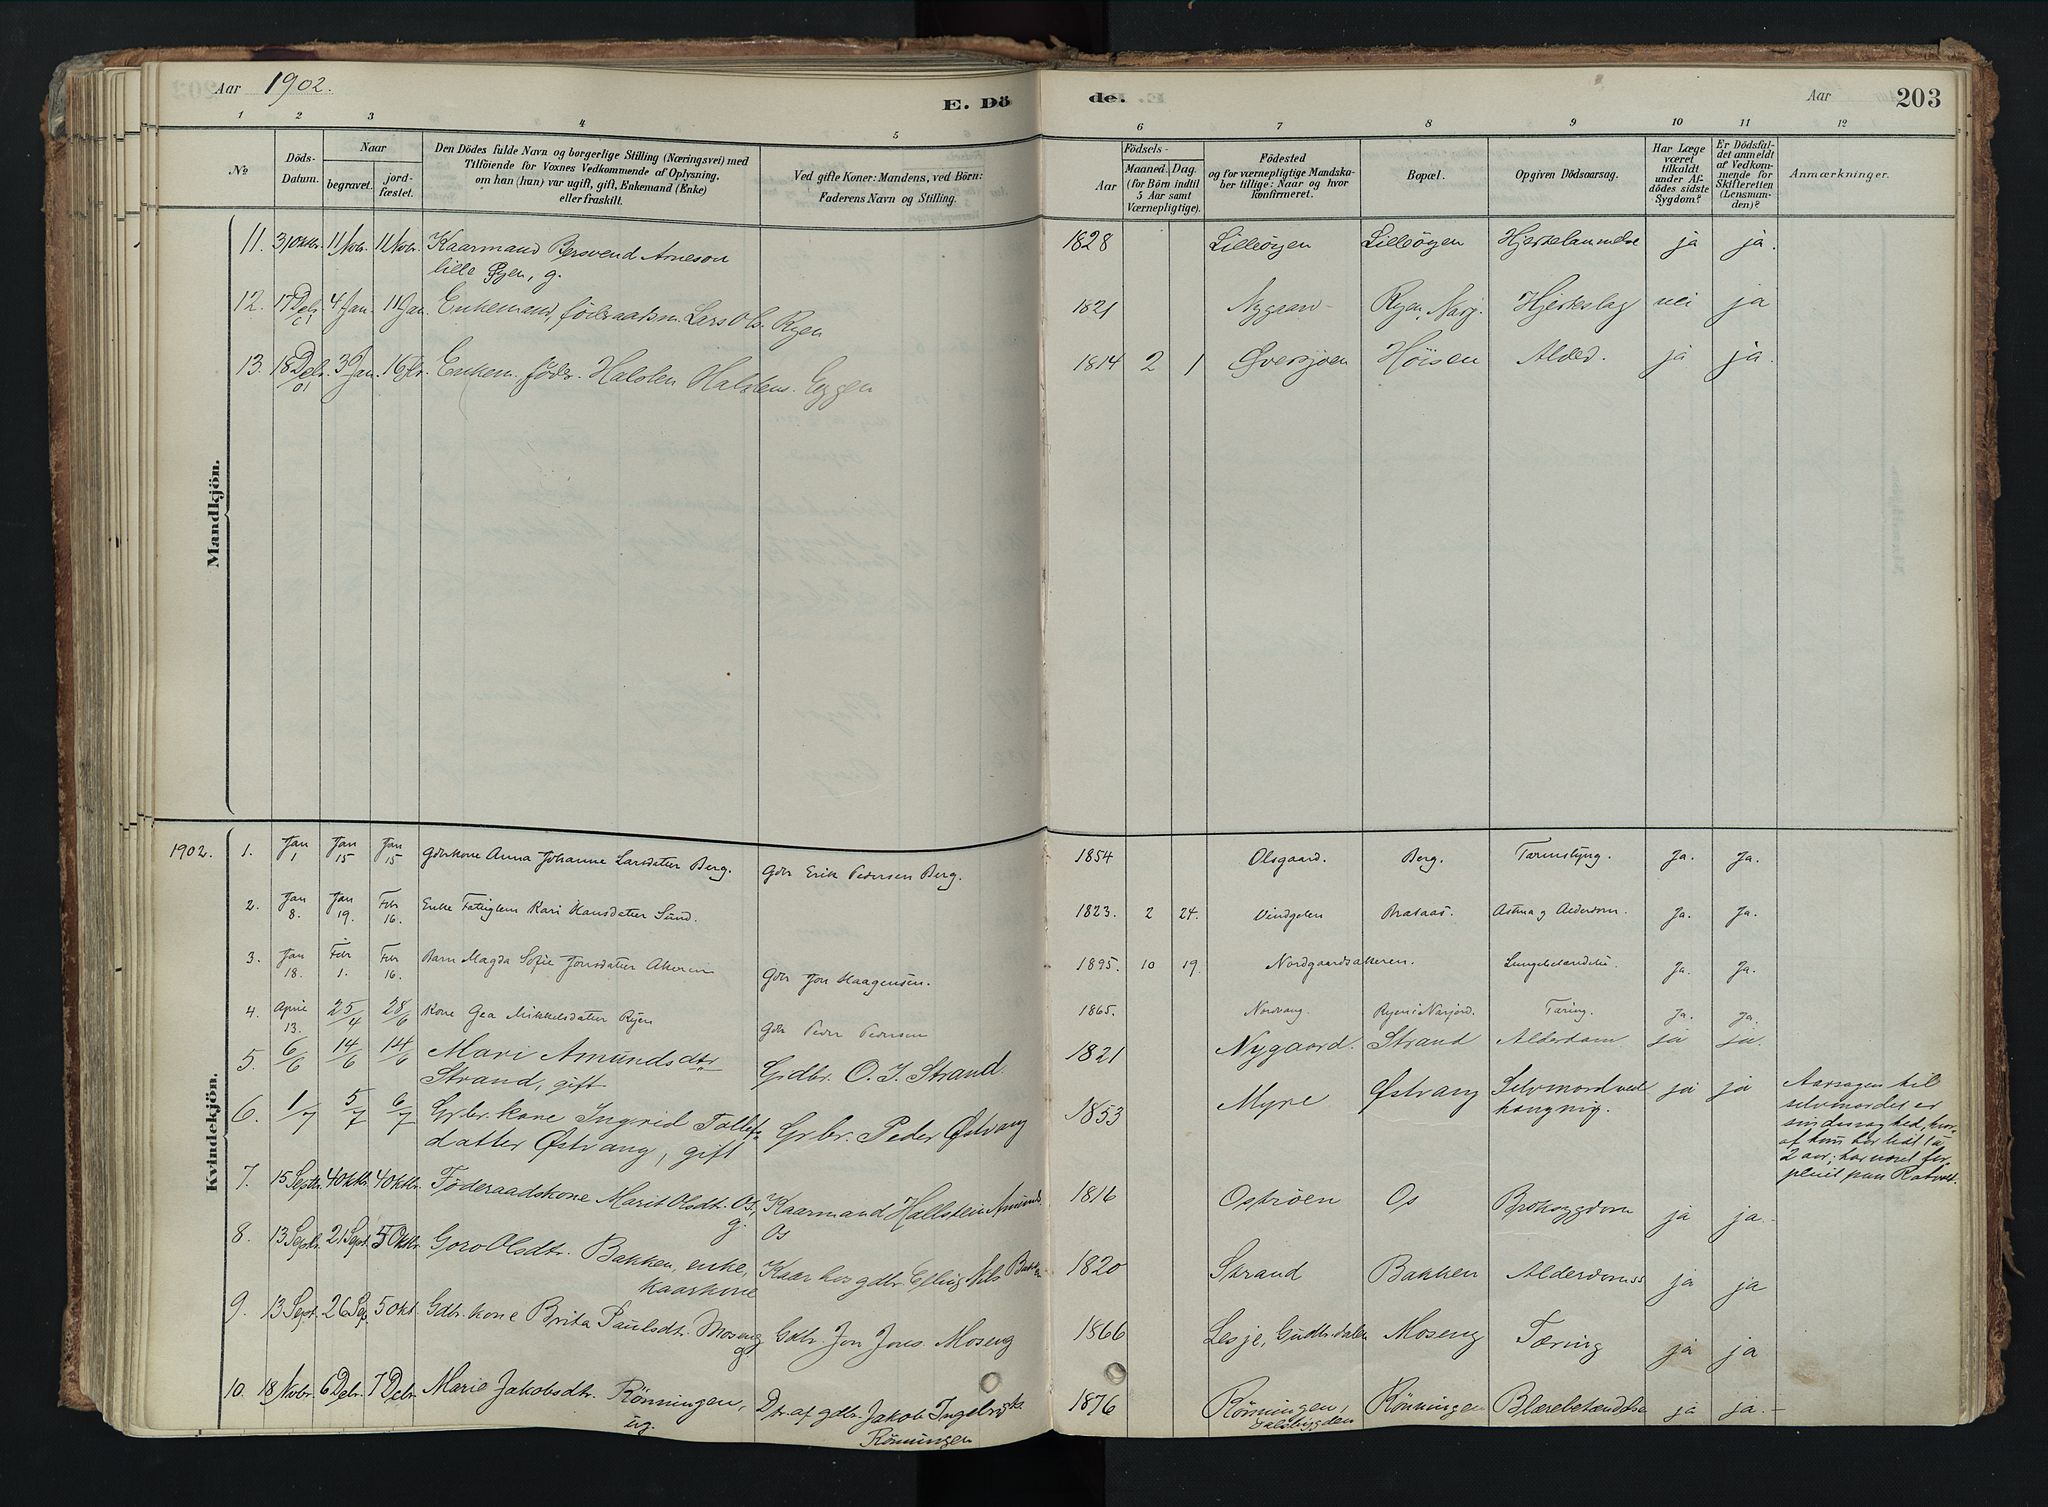 Aar 1902.
E. Dö de.
Aar
203
1 2 3 4 5 6 7 8 9 10 11 12
No
Döds-Datum.
Naar
begravet.
jord-fæstet.
Den Dödes fulde Navn og borgerlige Stilling (Næringsvei) med
Tilföiende for Voxnes Vedkommende af Oplysning,
om han (hun) var ugift, gift, Enkemand (Enke)
eller fraskilt.
Ved gifte Koner: Mandens, ved Börn:
Faderens Navn og Stilling.
Födsels-
Aar
Maaned. Dag.
(for Börn indtil
5 Aar samt
Værnepligtige).
Födested
og for værnepligtige Mandska-
ber tillige: Naar og hvor
konfirmeret.
Bopæl.
Opgiven Dödsaarsag.
Har Læge
været
tilkaldt
under Af-
dödes sidste
Sygdom?
Er Dödsfal-
det anmeldt
af Vedkom-
mende for
Skifteretten
(Lensman-
den)?
Anmærkninger.
Mandkjön.
11. 31 Oktbr. 11 Nobr. 11 Nobr. Kaarmand Bersvend Arneson 1828 Lilleøgen Lilleøgen Hjertelammelse ja ja.
lille Øyen, g.
12. 17 Debr. 4 Jan. 11 Jan. Enkemand, föderaadsm. Lars Ols. Ryen 1821 Nygaard Ryen, Narj. Hjerteslag nei ja
13. 18 Debr. 01 3 Jan. 16 Fbr. Enkem. föder. Halsten Halstens. Eggen 1814 2 1 Øversjøen Höisen Alded. ja ja.
Kvindekjön.
1902. 1. Jan 1 Jan 15 Jan 15 Gdbrkone Anna Johanne Larsdatter Berg. Gdbr Erik Pedersen Berg. 1854 Olsgaard. Berg. Tarmslyng. Ja. Ja.
2. Jan 8. Jan 19. Febr 16. Enke Fattiglem Kari Hansdatter Sund. 1823. 2 24. Vindgelen Brataas. Astma og Alderdom. Ja. Ja.
3. Jan 18. Febr 1. Febr 16. Barn Magda Sofie Jonsdatter Akeren Gdbr Jon Haagensen. 1895. 10 19. Nordgaardsakeren. Lungebetændelse Ja. Ja.
4. April 13. 25/4 28/6 Kone Gea Mikkelsdatter Ryen Gdbr Peder Pedersen 1865. Nordvang. Ryen i Narjord. Tæring. Ja. Ja.
5. 6/6 14/6 14/6 Mari Amundsdtr Grdbr. O. J. Strand. 1821 Nygaard. Strand Alderdom ja ja.
Strand, gift
6. 1/7 5/7 6/7 Grbr. kone Ingrid Tollefs- Grbr. Peder Østvang 1853 Myre Østvang Selvmord ved ja ja Aarsagen til
datter Østvang, gift hængnig. selvmordet er
sindssyghed, hvor-
af hun har lidt i a
2 aar; har været for-
pleiet paa Rotvold.
7. 15 Septbr. 4 Oktbr. 4 Oktbr. Föderaadskone Marit Olsdtr. Os, Kaarmand Hallstein Amunds. 1816 Ostrøen Os Brøksygdom ja ja.-
g. Os
8. 13 Septbr. 21 Sept. 5 Oktbr. Goro Olsdtr. Bakken, enke, Kaar hos gdbr. Elling Nils Bakken 1820 Strand Bakken Alderdomss ja ja
kaarkone
9. 13 Sept. 26 Sep. 5 Okt. Gdbr. kone Brita Paulsdtr. Moseng Gdbr. Jon Jons. Moseng 1866 Lesje, Gudbr.dalen Moseng Tæring ja ja
g.
10. 18 Nobr. 6 Debr. 7 Debr. Marie Jakobsdtr. Rönningen, Dtr. af gdbr. Jakob Ingebrigts. 1876 Rönningen, Rönningen Blærebetændelse ja ja.-
ug. Rönningen Dalsbygden